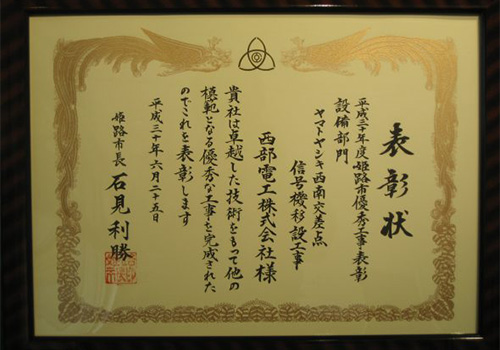 表彰状
平成三十年度姫路市優秀工事表彰
設備部門
ヤマトヤシキ西南交差点
信号機移設工事
西部電工株式会社様
貴社は卓越した技術をもって他の
模範となる優秀な工事を完成された
のでこれを表彰します
平成三十年六月二十五日
姫路市長 石見利勝